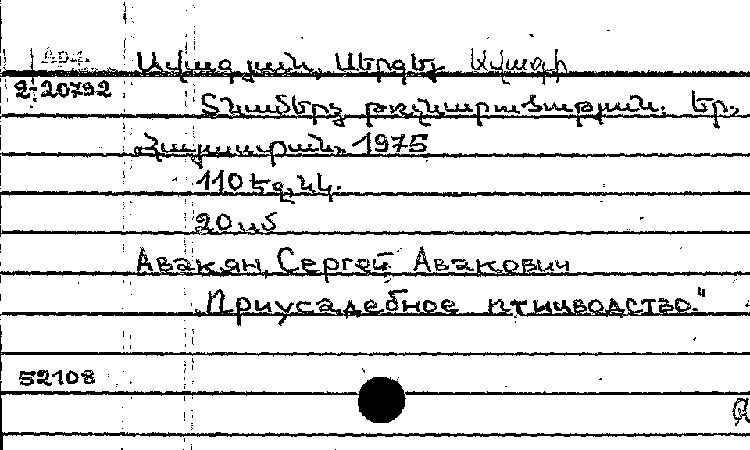 Ավագյան, Սերգեյ Ավագի
2-20792
Տնամերձ թռչնաբուծություն. Եր.,
«Հայաստան», 1975
110 էջ, նկ.
20 սմ
Авакян, Сергей Авакович
„Приусадебное птицводство."
52108